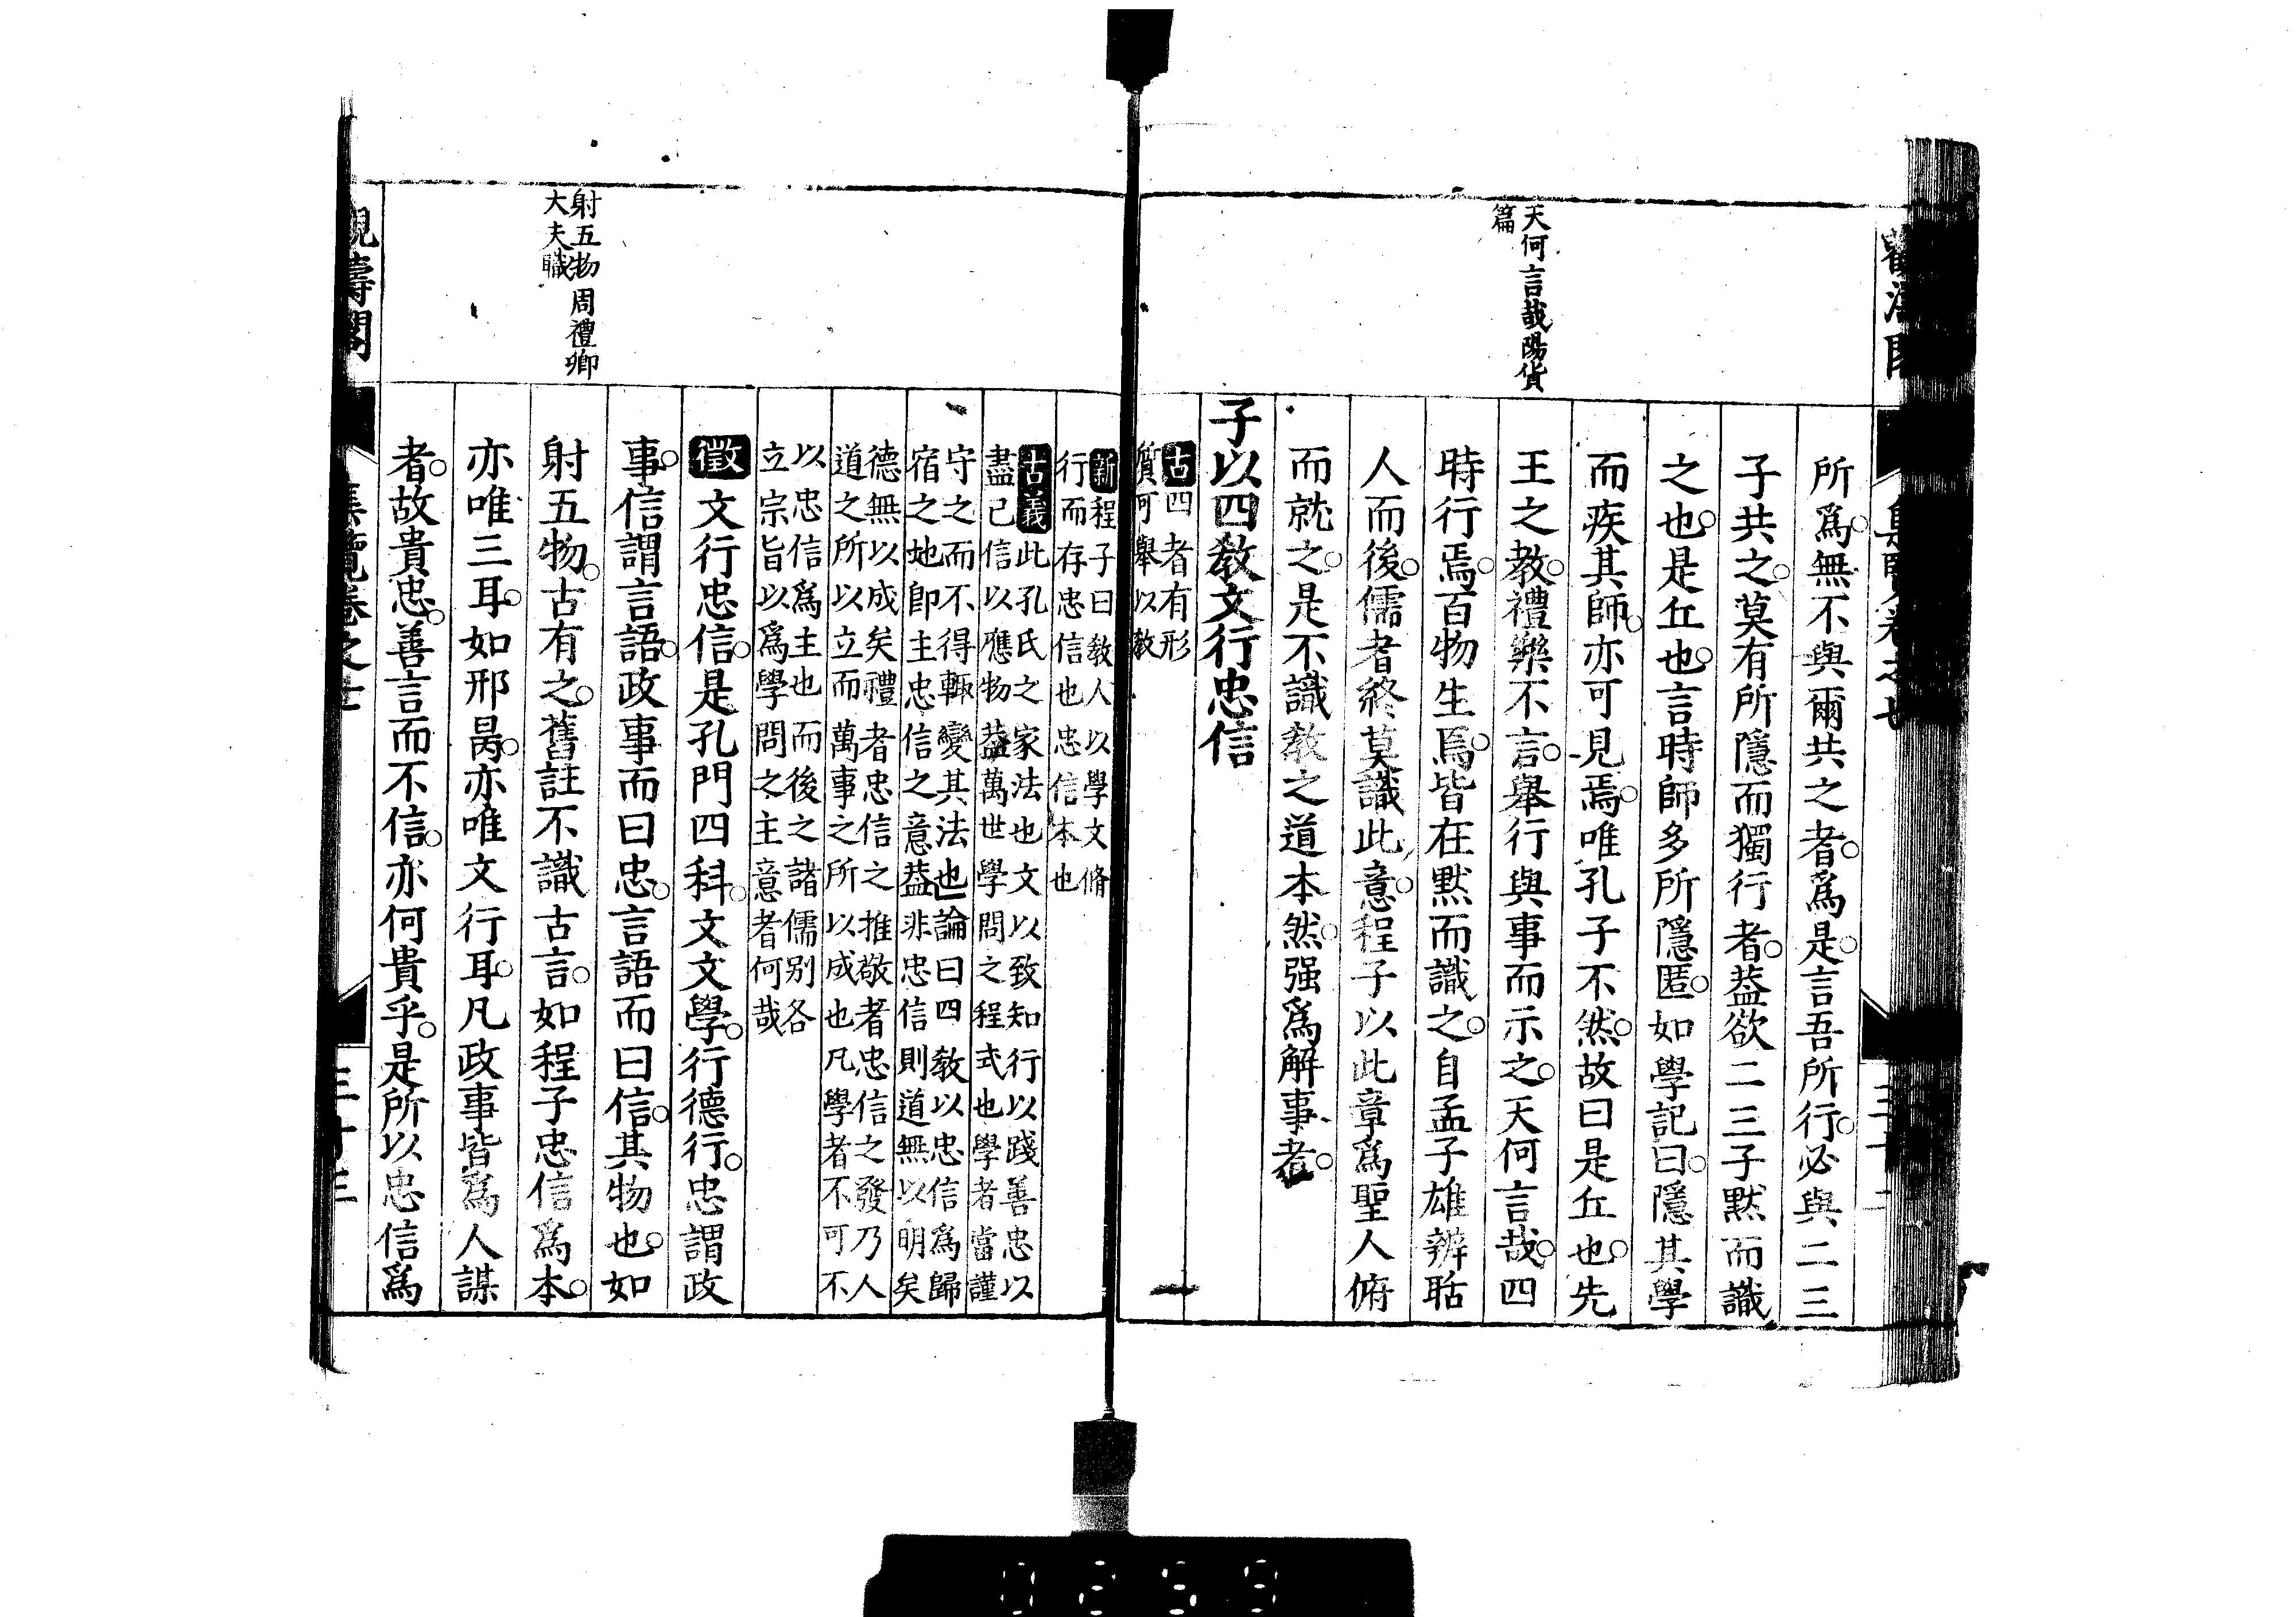 天何言哉陽貨
篇
所爲無不與爾共之者爲是言吾所行必與二三
子共之莫有所隱而獨行者葢欲二三子默而識
之也是丘也言時師多所隱匿如學記曰隱其學
而疾其師亦可見焉唯孔子不然故曰是丘也先
王之教禮樂不言舉行與事而示之天何言哉四
時行焉百物生焉皆在默而識之自孟子雄辨聒
人而後儒者終莫識此意程子以此章爲聖人俯
而就之是不識教之道本然强爲解事者
子以四教文行忠信
古四者有形
質可舉以教
射五物周禮鄉
大夫職
新程子曰教人以學文脩
行而存忠信也忠信本也
古義此孔氏之家法也文以致知行以踐善忠以
盡己信以應物葢萬世學問之程式也學者當謹
守之而不得輙變其法也論曰四教以忠信爲歸
宿之地卽主忠信之意葢非忠信則道無以明矣
德無以成矣禮者忠信之推敬者忠信之發乃人
道之所以立而萬事之所以成也凡學者不可不
以忠信爲主也而後之諸儒别各
立宗旨以爲學問之主意者何哉
徵文行忠信是孔門四科文文學行德行忠謂政
事信謂言語政事而曰忠言語而曰信其物也如
射五物古有之舊註不識古言如程子忠信爲本
亦唯三耳如邢昺亦唯文行耳凡政事皆爲人謀
者故貴忠善言而不信亦何貴乎是所以忠信爲